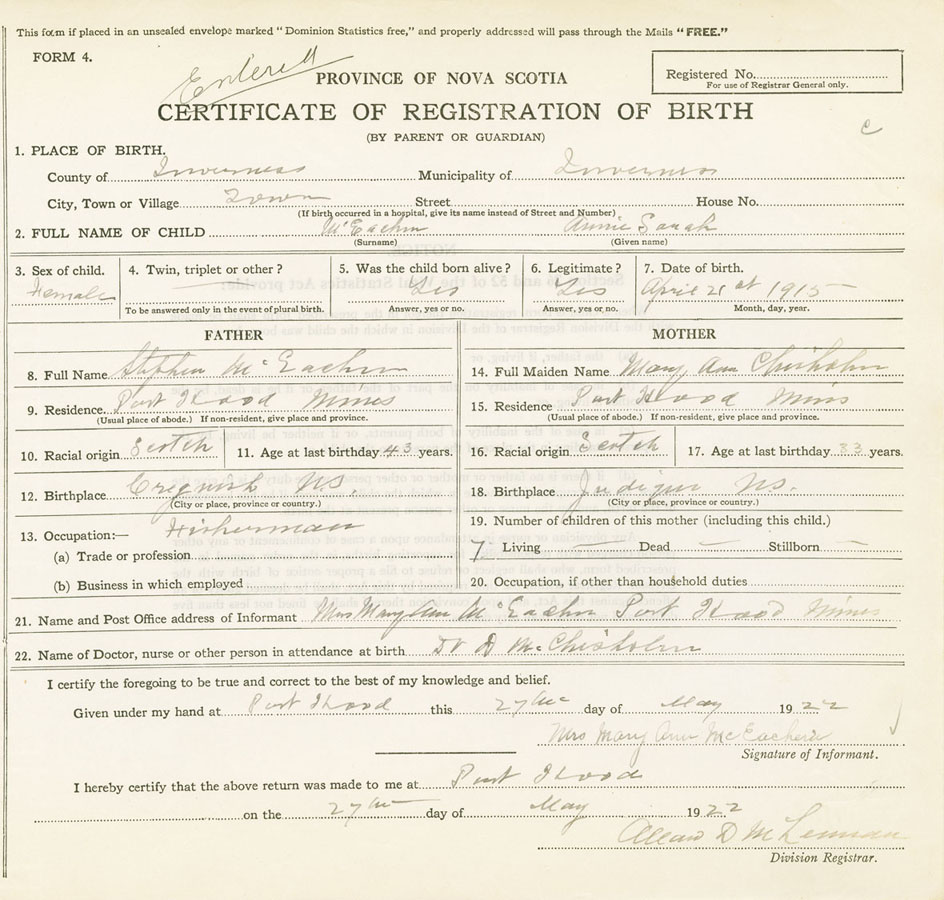 This form if placed in an unsealed envelope marked "Dominion Statistics free," and properly addressed will pass through the Mails "FREE."
FORM 4.
Entered
PROVINCE OF NOVA SCOTIA
Registered No.
For use of Registrar General only.
CERTIFICATE OF REGISTRATION OF BIRTH
(BY PARENT OR GUARDIAN)
c
1. PLACE OF BIRTH.
County of Inverness Municipality of Inverness
City, Town or Village Town Street House No.
(If birth occurred in a hospital, give its name instead of Street and Number)
2. FULL NAME OF CHILD McEachrn Annie Sarah
(Surname) (Given name)
3. Sex of child. 4. Twin, triplet or other? 5. Was the child born alive? 6. Legitimate? 7. Date of birth.
Female Yes Yes April 21st 1915
To be answered only in the event of plural birth. Answer, yes or no. Answer, yes or no. Month, day, year.
FATHER MOTHER
8. Full Name Stephen McEachrn 14. Full Maiden Name Mary Ann Chisholm
9. Residence Port Hood Mines 15. Residence Port Hood Mins
(Usual place of abode.) If non-resident, give place and province. (Usual place of abode.) If non-resident, give place and province.
10. Racial origin Scotch 11. Age at last birthday 43 years. 16. Racial origin Scotch 17. Age at last birthday 33 years.
12. Birthplace Creignish NS. 18. Birthplace Judique NS.
(City or place, province or country.) (City or place, province or country.)
13. Occupation:— Fisherman 19. Number of children of this mother (including this child.)
(a) Trade or profession 7 Living Dead — Stillborn —
(b) Business in which employed 20. Occupation, if other than household duties
21. Name and Post Office address of Informant Mrs Mary Ann McEachrn Port Hood Mines
22. Name of Doctor, nurse or other person in attendance at birth Dr D McChisholm
I certify the foregoing to be true and correct to the best of my knowledge and belief.
Given under my hand at Port Hood this 27th day of May 1922
Mrs Mary Ann McEachern
Signature of Informant.
I hereby certify that the above return was made to me at Port Hood
on the 27th day of May 1922
Allan D McLennan
Division Registrar.